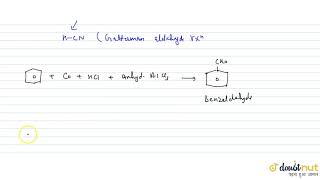 H-CN (Gattermann aldehyde rxn
+ CO + HCl + anhyd. AlCl3 →
CHO
Benzaldehyde
doubtnut